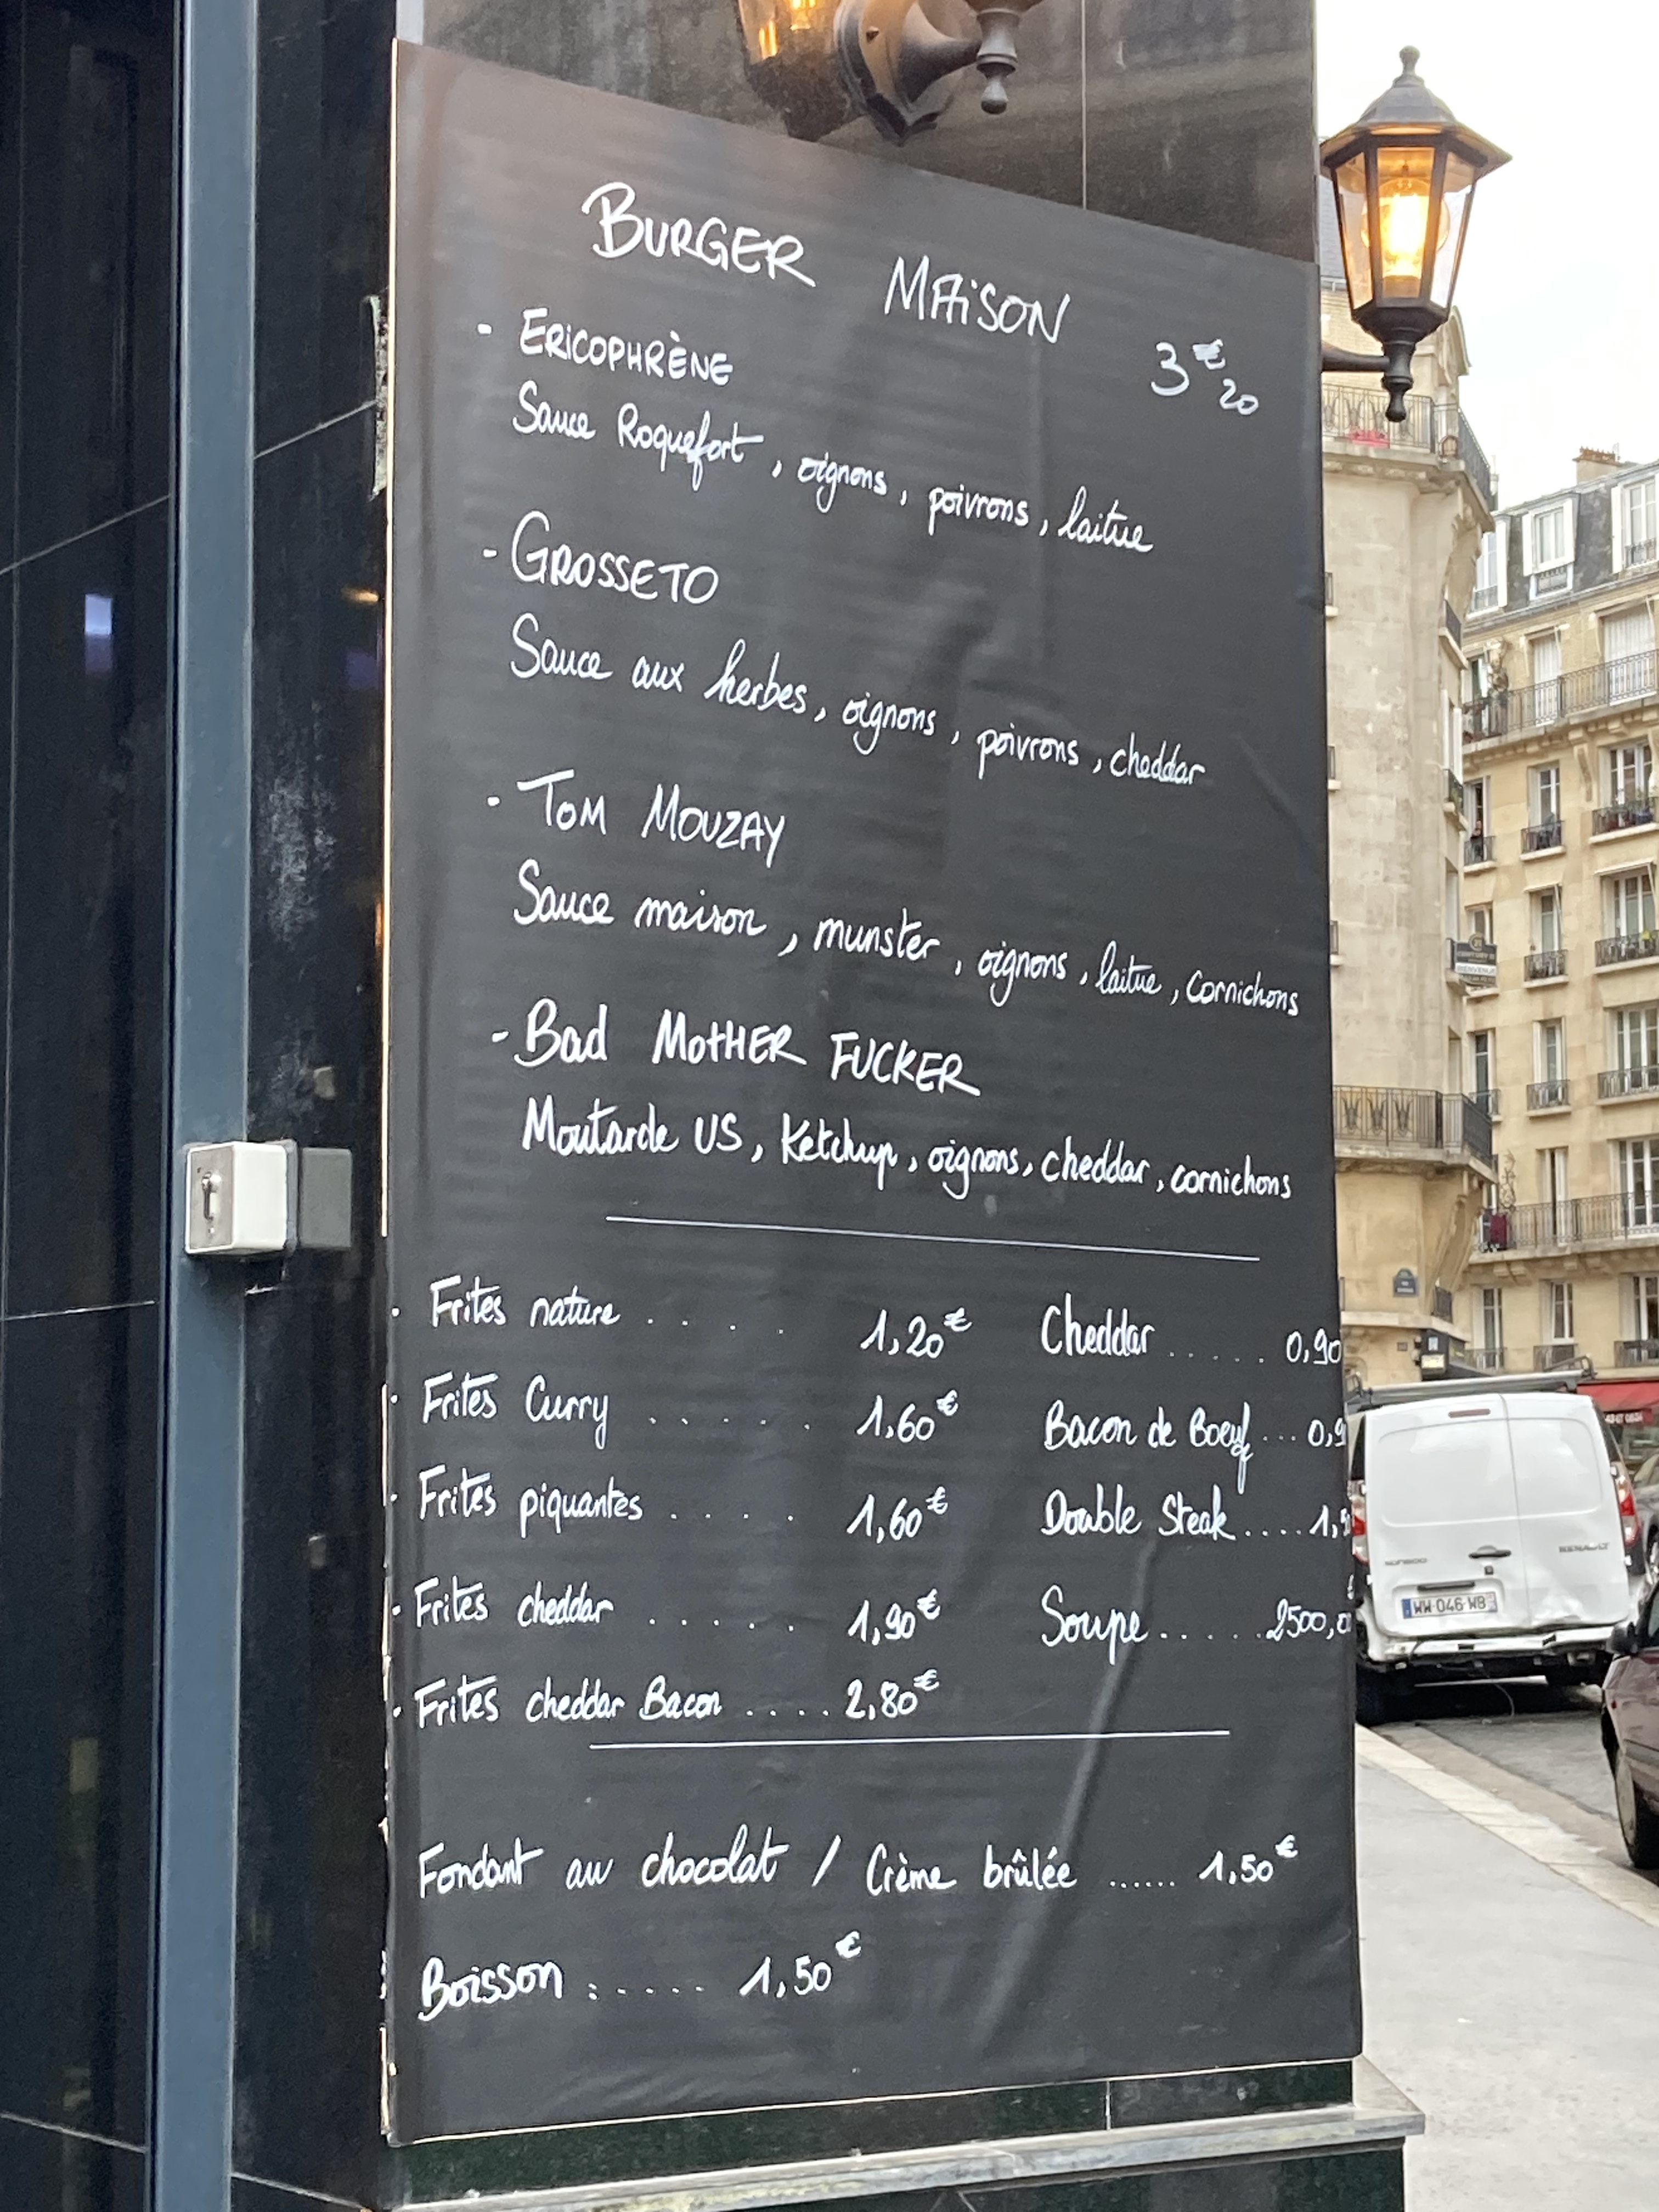 BURGER MAiSON
3€20
- ERiCOPHRÈNE
Sauce Roquefort, oignons, poivrons, laitue
- GROSSETO
Sauce aux herbes, oignons, poivrons, cheddar
- TOM MOUZAY
Sauce maison, munster, oignons, laitue, cornichons
- Bad MOtHER FUCKER
Moutarde US, Ketchup, oignons, cheddar, cornichons
· Frites nature . . . . 1,20€
· Frites Curry . . . . . 1,60€
· Frites piquantes . . . . 1,60€
· Frites cheddar . . . . . 1,90€
· Frites cheddar Bacon .... 2,80€
Cheddar ..... 0,90
Bacon de Boeuf ... 0,9
Double Steak .... 1,5
Soupe ..... 2500,0
Fondant au chocolat / Crème brûlée ...... 1,50€
Boisson : ..... 1,50€
RENAULT
WW-046-WB